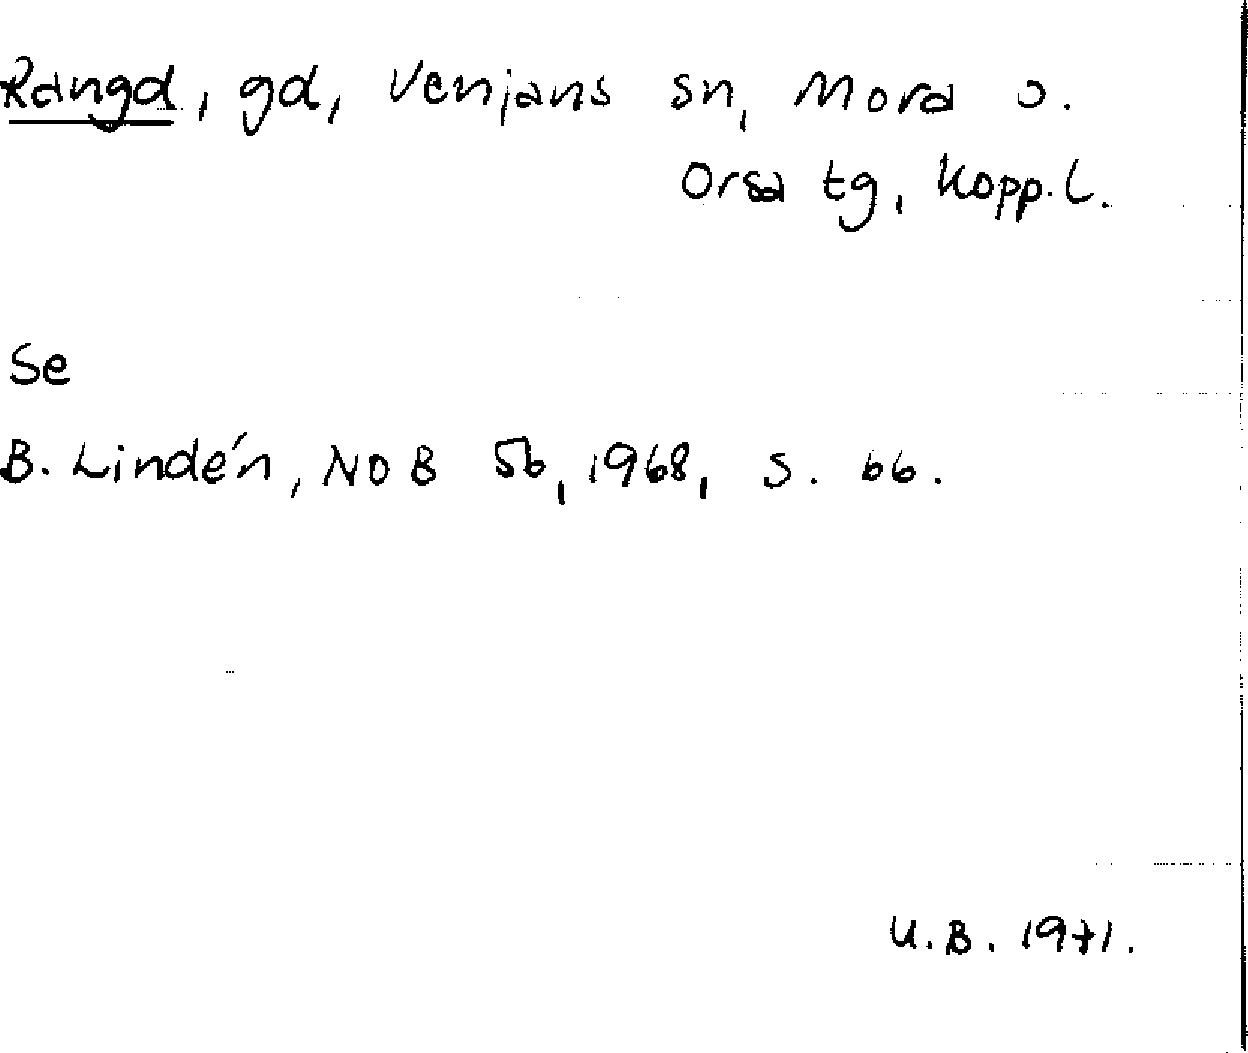 Rangd, gd, Venjans sn, Mora o.
Orsa tg, Kopp. l.
Se
B. Lindén, NOB 56, 1968, s. 66.
U.B. 1971.